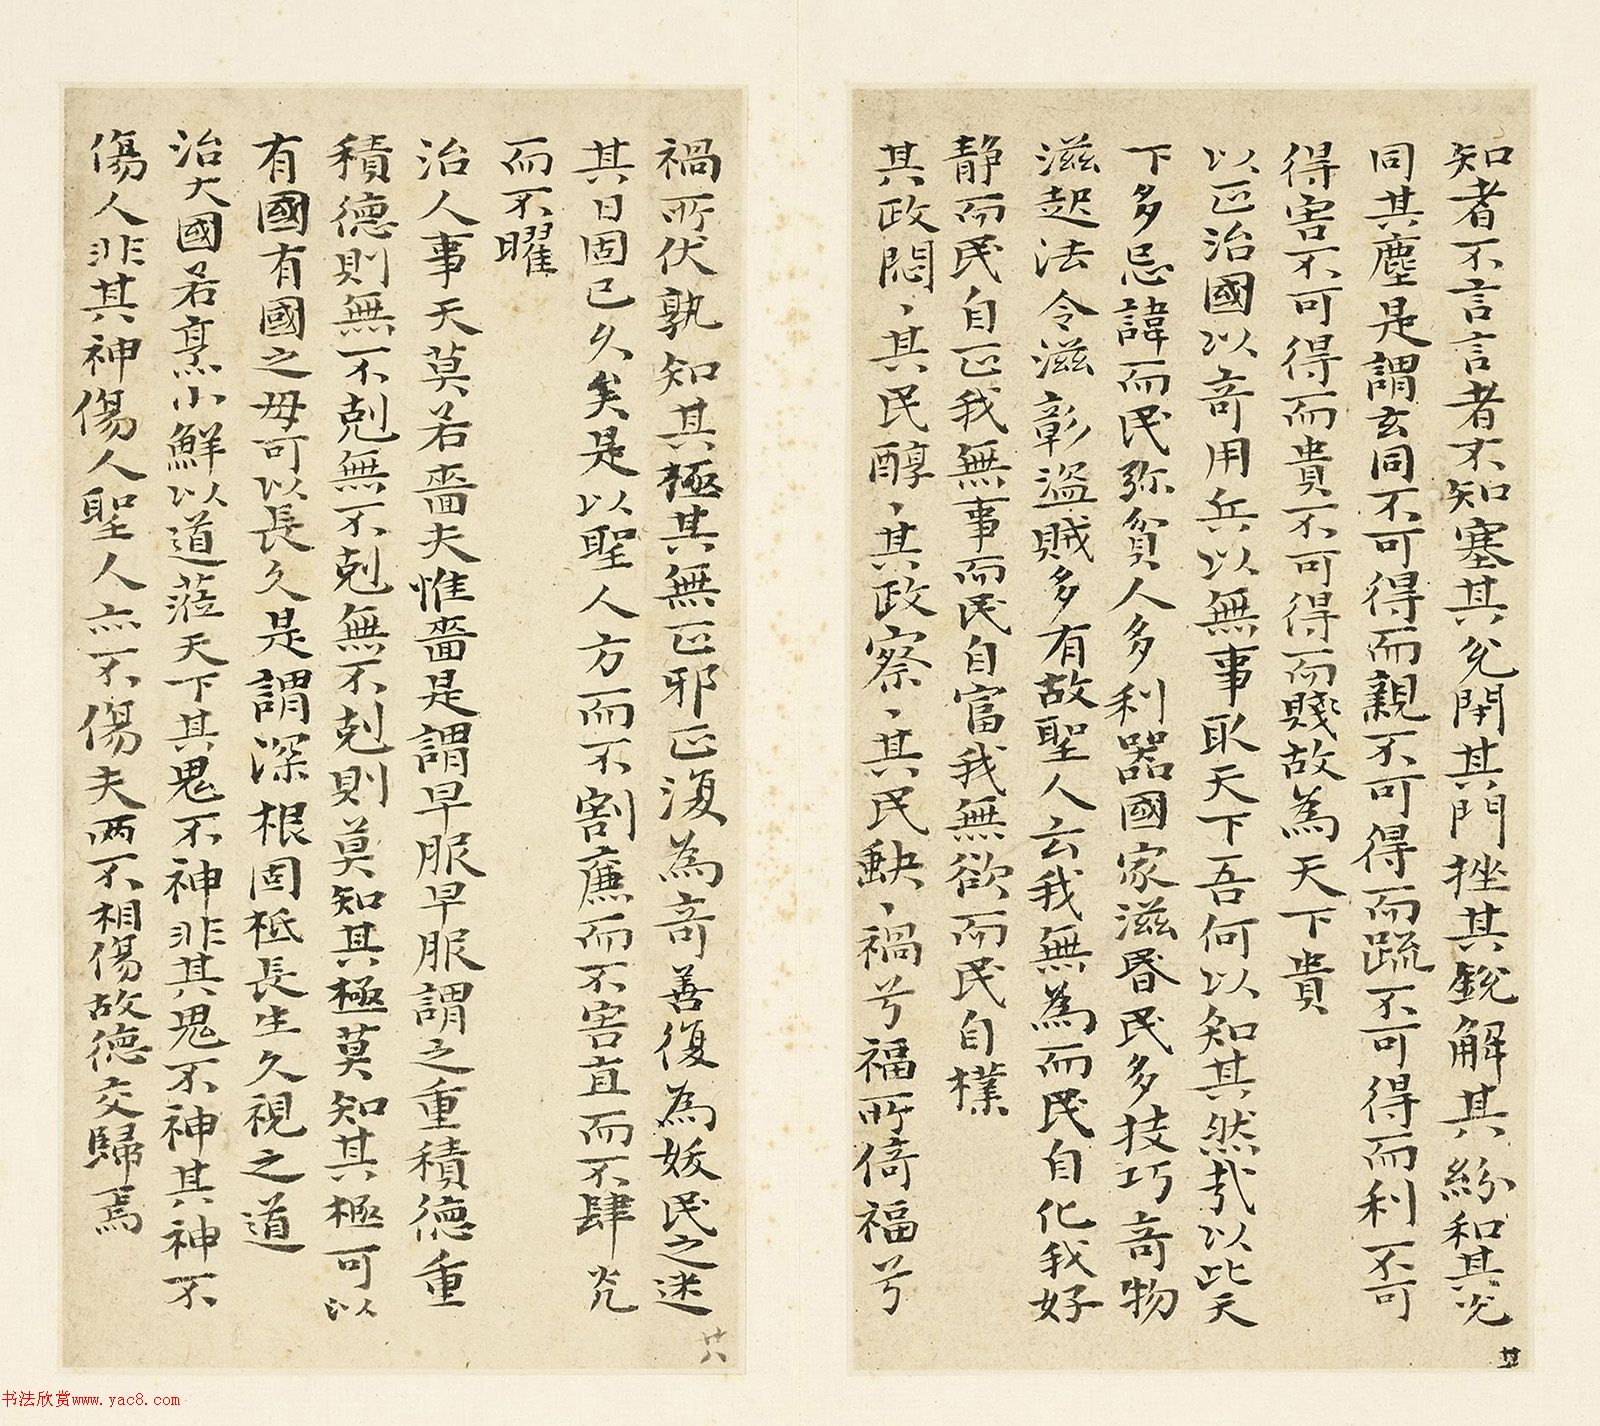 知者不言言者不知塞其兌閉其門挫其銳解其紛和其光
同其塵是謂玄同不可得而親不可得而疏不可得而利不可
得害不可得而貴不可得而賤故為天下貴
以正治國以奇用兵以無事取天下吾何以知其然哉以此天
下多忌諱而民弥貧人多利器國家滋昬民多技巧奇物
滋起法令滋彰盜賊多有故聖人云我無為而民自化我好
静而民自正我無事而民自富我無欲而民自樸
其政悶、其民醇、其政察、其民缺、禍兮福所倚福兮
禍所伏孰知其極其無正邪正復為奇善復為妖民之迷
其日固已久矣是以聖人方而不割廉而不害直而不肆光
而不曜
治人事天莫若嗇夫惟嗇是謂早服早服謂之重積德重
積德則無不剋無不剋無不剋則莫知其極莫知其極可以
有國有國之母可以長久是謂深根固柢長生久視之道
治大國若烹小鮮以道蒞天下其鬼不神非其鬼不神其神不
傷人非其神傷人聖人亦不傷夫两不相傷故德交歸焉
廿八
书法欣赏www.yac8.com